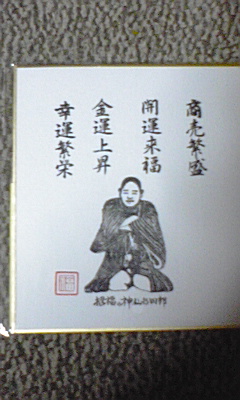 商売繁盛
開運来福
金運上昇
幸運繁栄
招福の神仙台四郎